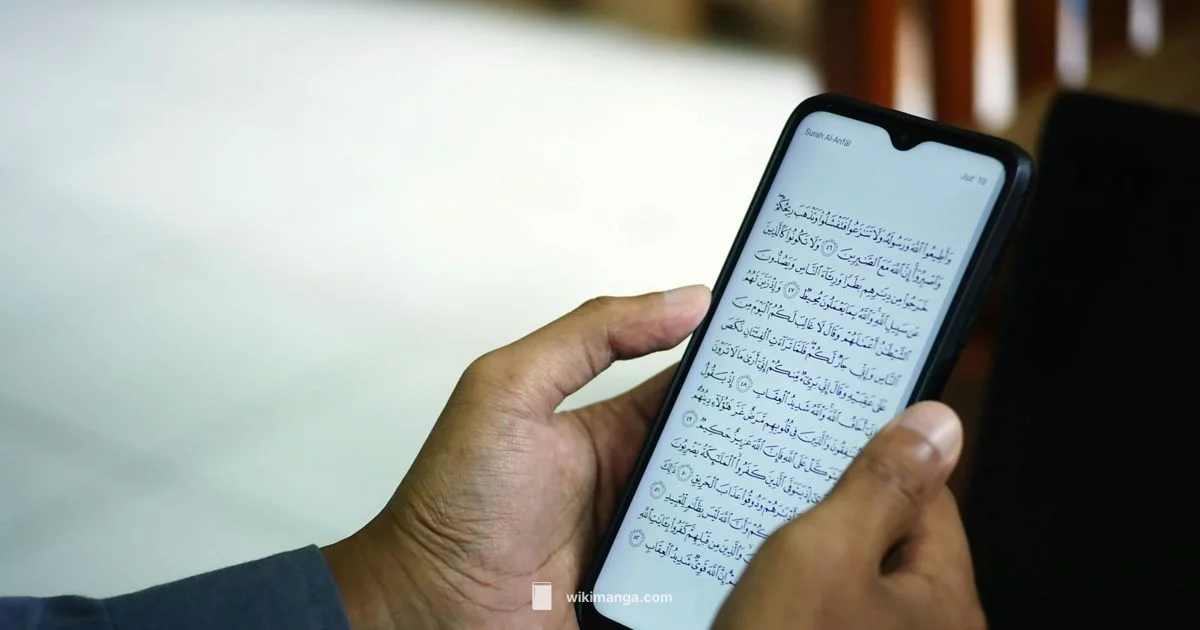 Surah Al-Anfāl
Juz' 10
وَأَطِيعُوا۟ ٱللَّهَ وَرَسُولَهُۥ وَلَا تَنَـٰزَعُوا۟ فَتَفْشَلُوا۟ وَتَذْهَبَ رِيحُكُمْ
وَٱصْبِرُوٓا۟ إِنَّ ٱللَّهَ مَعَ ٱلصَّـٰبِرِينَ ٤٦ وَلَا تَكُونُوا۟ كَٱلَّذِينَ
خَرَجُوا۟ مِن دِيَـٰرِهِم بَطَرًا وَرِئَآءَ ٱلنَّاسِ وَيَصُدُّونَ
عَن سَبِيلِ ٱللَّهِ وَٱللَّهُ بِمَا يَعْمَلُونَ مُحِيطٌ ٤٧ وَإِذْ زَيَّنَ لَهُمُ
ٱلشَّيْطَـٰنُ أَعْمَـٰلَهُمْ وَقَالَ لَا غَالِبَ لَكُمُ ٱلْيَوْمَ مِنَ
ٱلنَّاسِ وَإِنِّى جَارٌ لَّكُمْ فَلَمَّا تَرَآءَتِ ٱلْفِئَتَانِ نَكَصَ
عَلَىٰ عَقِبَيْهِ وَقَالَ إِنِّى بَرِىٓءٌ مِّنكُمْ إِنِّىٓ أَرَىٰ مَا لَا تَرَوْنَ
أَخَافُ ٱللَّهَ وَٱللَّهُ شَدِيدُ ٱلْعِقَابِ ٤٨ إِذْ يَقُولُ
وَٱلَّذِينَ فِى قُلُوبِهِم مَّرَضٌ غَرَّ هَـٰٓؤُلَآءِ دِينُهُمْ
عَلَى ٱللَّهِ فَإِنَّ ٱللَّهَ عَزِيزٌ حَكِيمٌ ٤٩
إِذْ يَتَوَفَّى ٱلَّذِينَ كَفَرُوا۟ ٱلْمَلَـٰٓئِكَةُ يَضْرِبُونَ
وَذُوقُوا۟ عَذَابَ ٱلْحَرِيقِ ٥٠ ذَٰلِكَ
وَأَنَّ ٱللَّهَ لَيْسَ بِظَلَّـٰمٍ لِّلْعَبِيدِ ٥١
وَٱلَّذِينَ مِن قَبْلِهِمْ كَفَرُوا۟ بِـَٔايَـٰتِ ٱللَّهِ
إِنَّ ٱللَّهَ قَوِىٌّ شَدِيدُ ٱلْعِقَابِ ٥٢
wikimanga.com